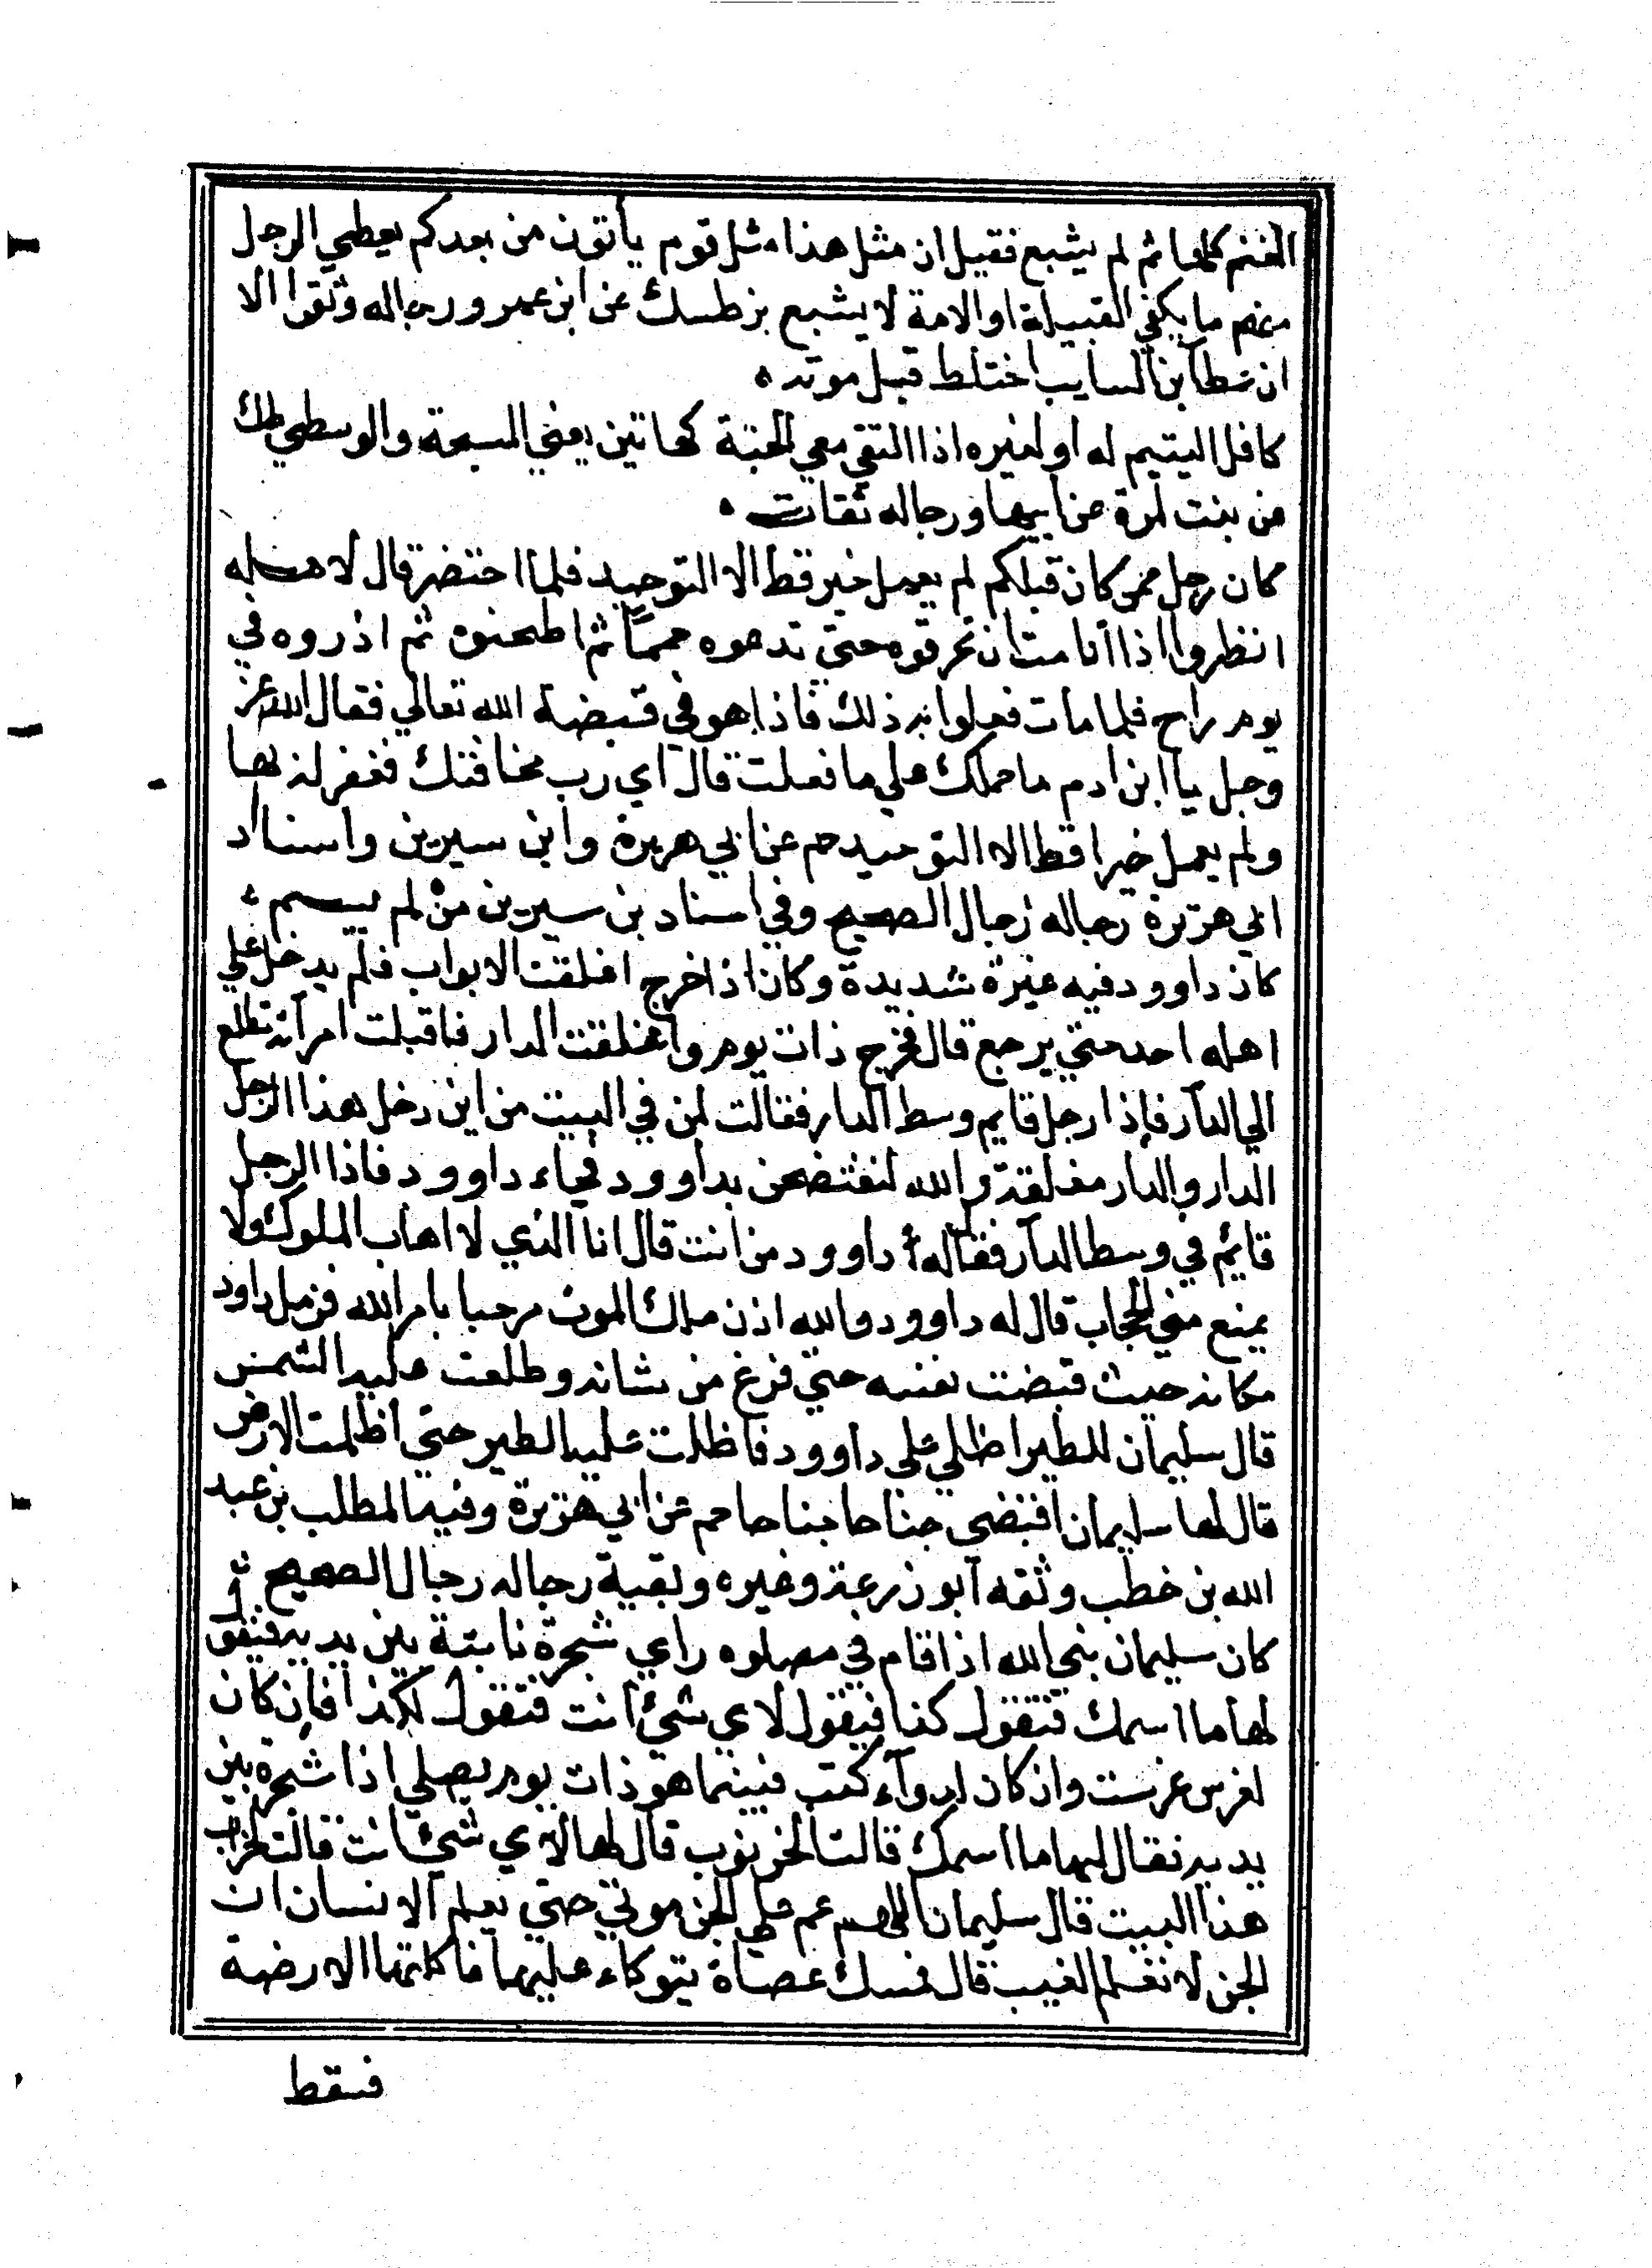 الغنم كلها ثم لم يشبع فقيل ان مثل هذا مثل قوم يأتون من بعدكم يعطي الرجل
منهم ما يكفي القبيلة او الامة لا يشبع بز طسك عن ابن عمر ورجاله وثقوا الا
ان عطا بن السايب اختلط قبل موته
كافل اليتيم له او لغيره اذا اتقي معي الجنة كهاتين يعني المسبحة والوسطي طك
من بنت لمرة عن ابيها ورجاله ثقات
كان رجل ممن كان قبلكم لم يعمل خير قط الا التوحيد فلما احتضر قال لاهله
انظروا اذا أنا مت ان تحرقوه حتي تدعوه حمما ثم اطحنوه ثم اذروه في
يوم راح فلما مات فعلوا به ذلك فاذا هو في قبضة الله تعالي فقال الله عز
وجل يا ابن ادم ما حملك علي ما فعلت قال اي رب مخافتك فغفر له بها
ولم يعمل خيرا قط الا التوحيد حم عن ابي هريرة وابن سيرين واسناد
ابي هريرة رجاله رجال الصحيح وفي اسناد بن سيرين من لم يسم
كان داوود فيه غيرة شديدة وكان اذا خرج اغلقت الابواب فلم يدخل علي
اهله احد حتي يرجع قال فخرج ذات يوم واغلقت الدار فاقبلت امرأته تطلع
الي الدار فإذا رجل قايم وسط الدار فقالت لمن في البيت من اين دخل هذا الرجل
الدار والدار مغلقة والله لنفتضحن بداوود فجاء داوود فاذا الرجل
قائم في وسط الدار فقال له داوود من انت قال انا الذي لا اهاب الملوك ولا
يمنع مني الحجاب قال له داوود والله اذن ملك الموت مرحبا بامر الله فزمل داود
مكانه حيث قبضت نفسه حتي فرغ من شانه وطلعت عليه الشمس
قال سليمان للطير اظلي علي داوود فاظلت عليه الطير حتي اظلمت الارض
قال لها سليمان اقبضي جناحا جناحا حم عن ابي هريرة وفيه المطلب بن عبد
الله بن خطب وثقه أبو زرعة وغيره وبقية رجاله رجال الصحيح
كان سليمان نبي الله اذا قام في مصلوه راي شجرة نابتة بين يديه فيقول
لها ما اسمك فتقول كذا فيقول لاي شيئ أنت فتقول لكذا فإن كان
لغرس غرست وان كان لدوآء كتب فبينما هو ذات يوم يصلي اذا شجرة بين
يديه فقال لها ما اسمك قالت الخرنوب قال لها لاي شيئ انت قالت لخراب
هذا البيت قال سليمان اللهم عم علي الجن موتي حتي يعلم الانسان ان
الجن لا تعلم الغيب قال فمسك عصاة يتوكاء عليها فاكلتها الارضة
فسقط